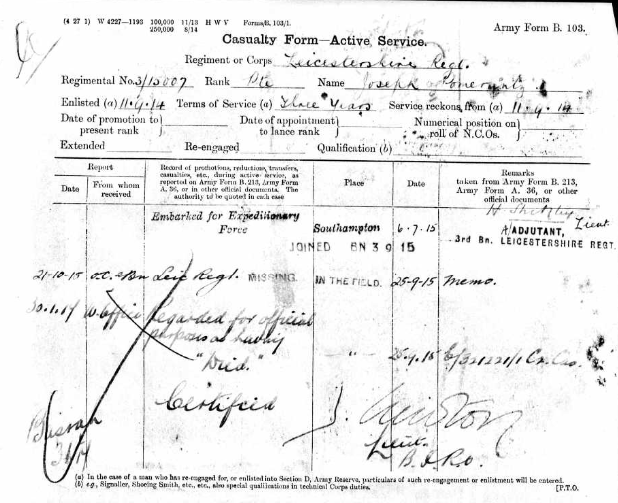 (4 27 1) W 4227—1193 100,000 11/13 H W V Forms/B. 103/1.
250,000 8/14
Army Form B. 103.
Casualty Form—Active Service.
Regiment or Corps Leicestershire Regt.
Regimental No. 3/15007 Rank Pte Name Joseph
Enlisted (a) 11.9.14 Terms of Service (a) Three Years Service reckons from (a) 11.9.14
Date of promotion to present rank } Date of appointment to lance rank } Numerical position on roll of N.C.Os. }
Extended Re-engaged Qualification (b)
Report
Date From whom received
Record of promotions, reductions, transfers, casualties, etc., during active service, as reported on Army Form B. 213, Army Form A. 36, or in other official documents. The authority to be quoted in each case
Place
Date
Remarks
taken from Army Form B. 213, Army Form A. 36, or other official documents
Embarked for Expeditionary Force Southampton 6.7.15
Lieut.
A/ADJUTANT,
3rd Bn. LEICESTERSHIRE REGT.
JOINED BN 3 9 15
21-10-15 O.C. Bn Leic Regt. MISSING. IN THE FIELD. 25-9-15 Memo.
30.1.17 W. Office Regarded for official
purposes as having
"Died." " 25.9.15
Certified
Lieut.
(a) In the case of a man who has re-engaged for, or enlisted into Section D, Army Reserve, particulars of such re-engagement or enlistment will be entered.
(b) e.g., Signaller, Shoeing Smith, etc., etc., also special qualifications in technical Corps duties.
[P.T.O.